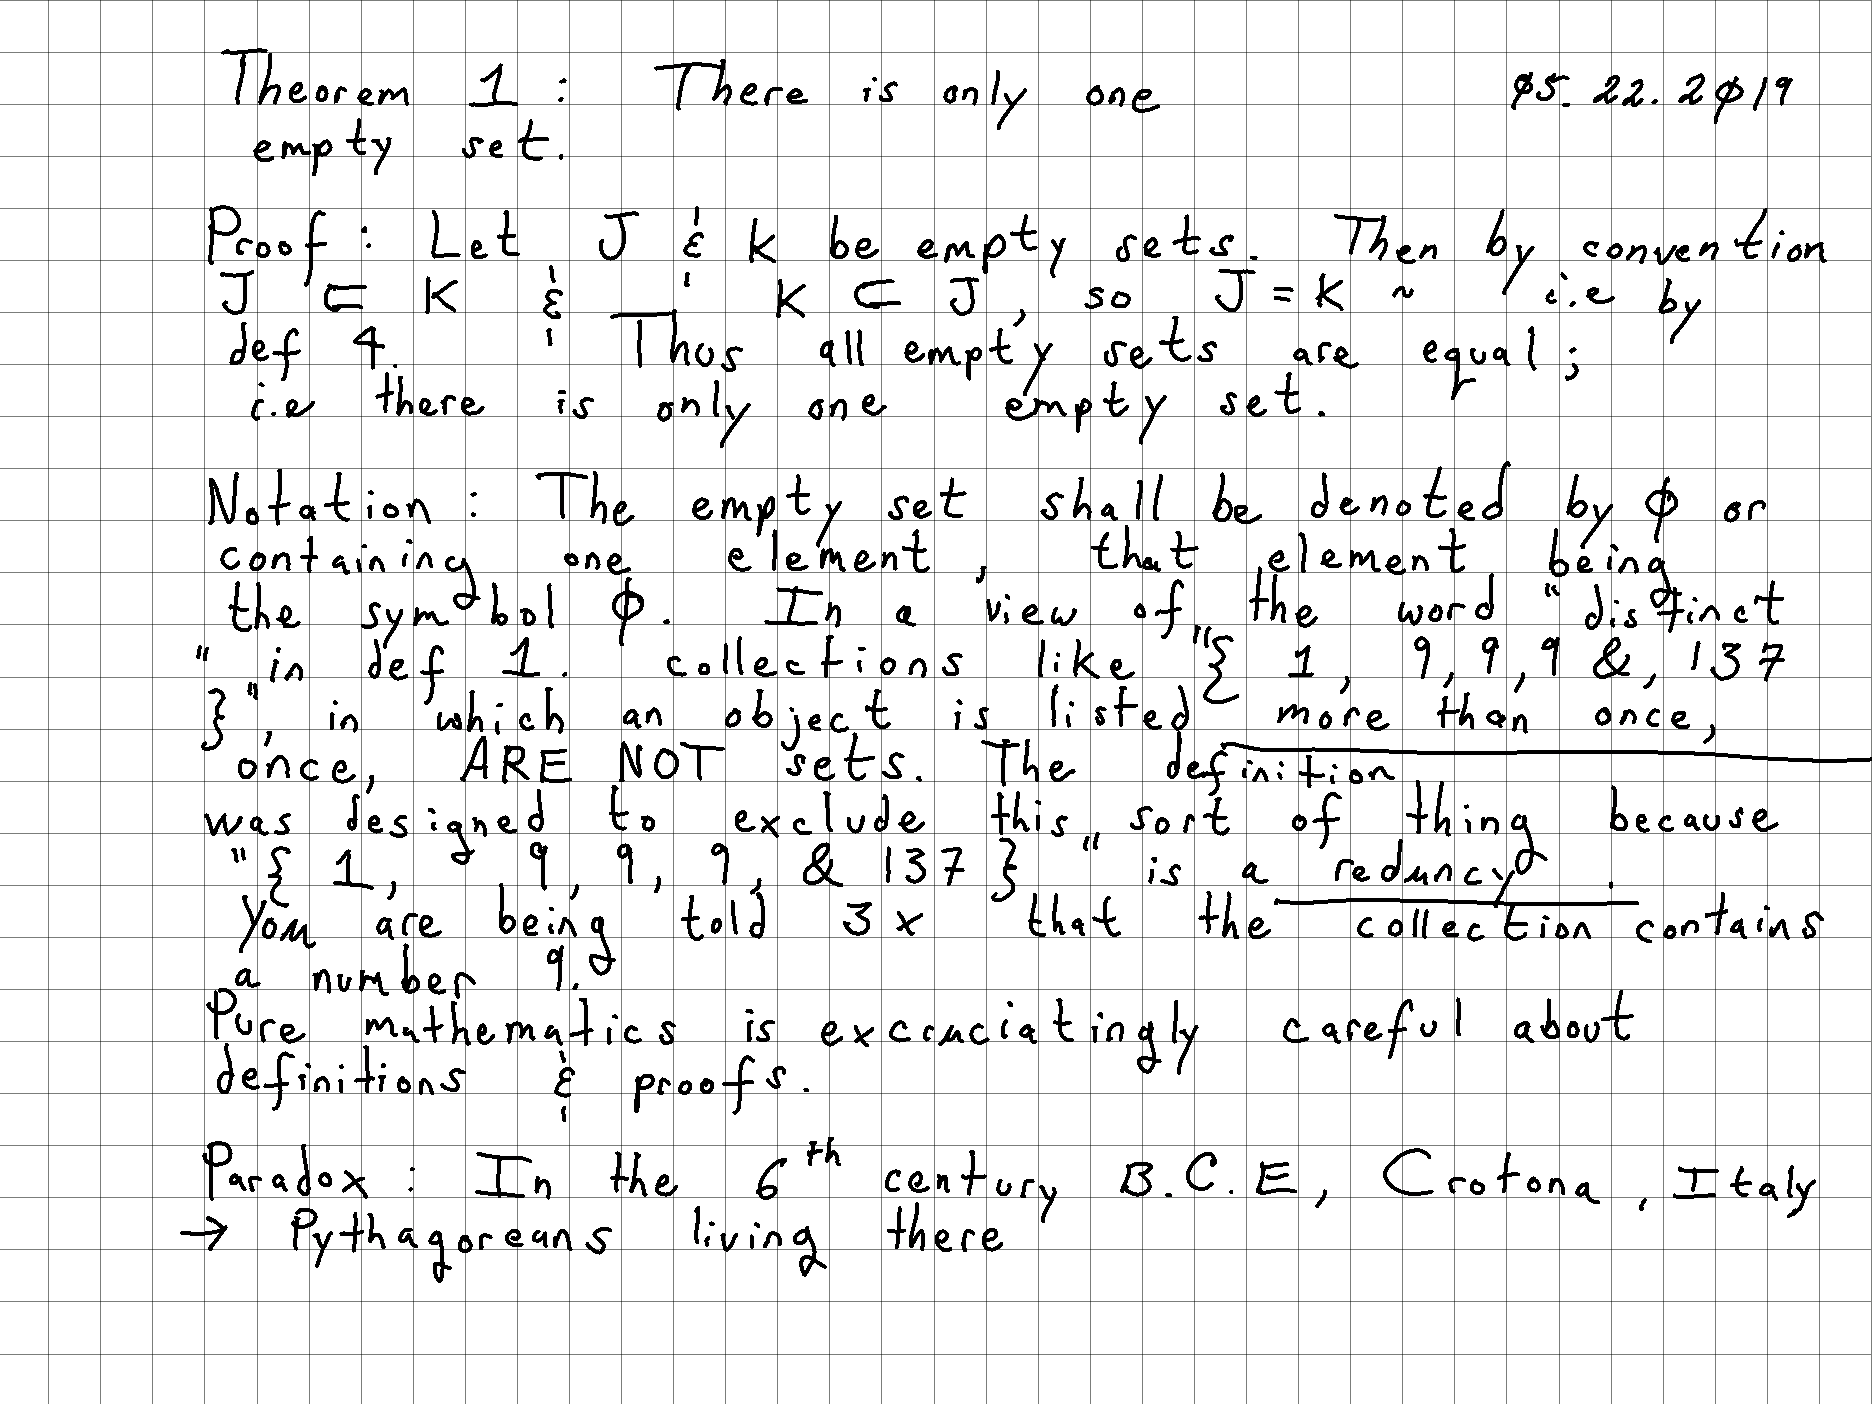 Theorem 1 : There is only one 05. 22. 2019
empty set.
Proof : Let J & K be empty sets. Then by convention
J ⊂ K & K ⊂ J, so J = K ~ i.e by
def 4. Thus all empty sets are equal;
i.e there is only one empty set.
Notation : The empty set shall be denoted by ϕ or
containing one element, that element being
the symbol ϕ. In a view of, the word "distinct
" in def 1. collections like "{ 1, 9, 9, 9 &, 137
}", in which an object is listed more than once,
once, ARE NOT sets. The definition
was designed to exclude this sort of thing because
"{ 1, 9, 9, 9, & 137 }" is a reduncy.
You are being told 3x that the collection contains
a number 9.
Pure mathematics is excruciatingly careful about
definitions & proofs.
Paradox : In the 6th century B.C.E, Crotona, Italy
→ Pythagoreans living there